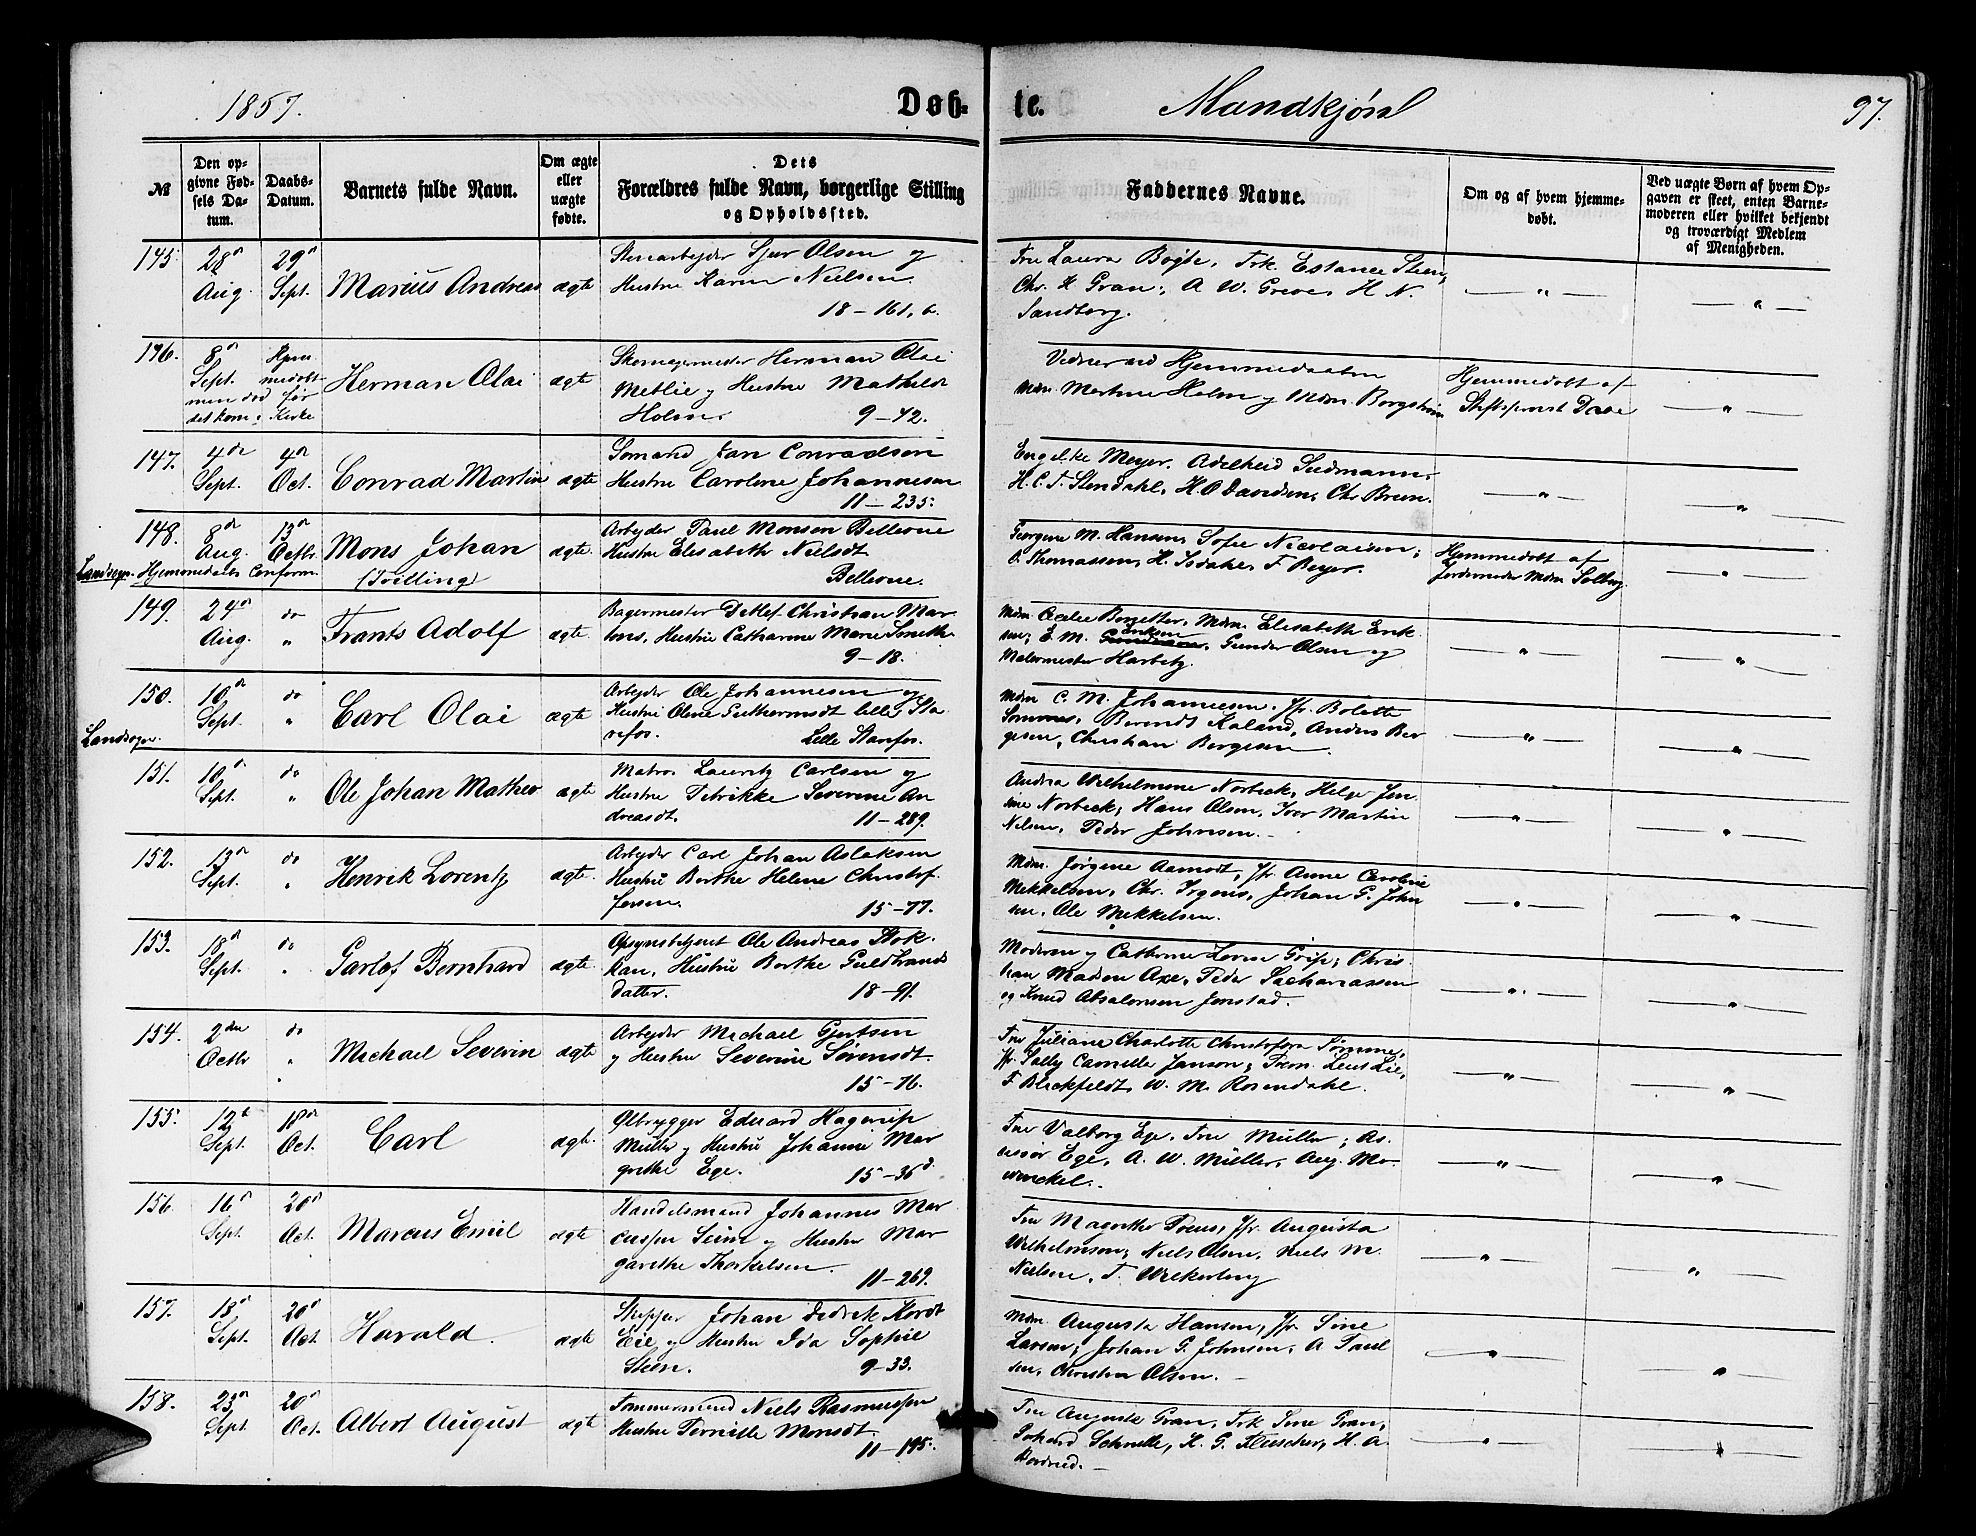 1857.
Døb-
te.
Mandkjøn
97.
№
Den op-
givne Fød-
sels Da-
tum.
Daabs-
Datum.
Barnets fulde Navn.
Om ægte
eller
uægte
fødte.
Dets
Forældres fulde Navn, borgerlige Stilling
og Opholdssted.
Faddernes Navne.
Om og af hvem hjemme-
døbt.
Ved uægte Børn af hvem Op-
gaven er skeet, enten Barne-
moderen eller hvilket bekjendt
og troværdigt Medlem
af Menigheden.
145.
28 Aug.
29 Sept.
Marius Andreas
ægte
Stenarbeider Sjur Olsen og
Hustru Karen Nielsen.
18-161, b.
Fru Laura Bøgh, Frk. Estance Steen,
Chr. K Gran, A W. Greve, H N.
Sandberg.
146.
8 Sept.
men død før
det kom i Kirke
Hjem
medøbt
Herman Olai
ægte
Skomagermester Herman Olai
Metlie og Hustru Mathilde
Holm.
9-42.
Vidner ved Hjemmedaaben
Mdm. Martine Holm og Mdm. Borgstrøm
Hjemmedøbt af
Stiftsprovst Daae
147.
4de Sept.
4de Oct.
Conrad Martin
ægte
Sømand Jan Conradsen
Hustru Caroline Johannesen
11-235.
Engelke Meyer, Adelheid Sudmann,
H. C. F. Stendahl, H. O Davidsen, Chr. Bruun.
148.
8de Aug.
13 Octbr.
Mons Johan
(Tvilling)
ægte.
Arbeider Paul Monsen Bellevue
Hustru Elisabeth Nielsdt.
Bellevue.
Georgine M. Hansen, Sofie Nicolaisen,
O. Thomassen, H. Isdahl, F Beyer.
Hjemmedøbt af
Jordemoder Mdm Solberg.
Landsogn. Hjemmedaabs Conform.
149.
24 Aug.
do
Frants Adolf
ægte.
Bagermester Detlef Christian Mar
tens, Hustru Catharina Marie Smith.
9-18.
Mdm. Cecilie Bernetter, Mdm. Elisabeth Erik
sen, E. M. Eriksen, Gunder Olsen og
Malermester Harbitz.
150.
10de Sept.
do
Carl Olai
ægte
Arbeider Ole Johannesen og
Hustru Oline Guthormsdt lille Sta
refos.
Lille Starefos.
Mdm C. M. Johannesen, Jfr. Bolette
Sommes, Berendt Kaland, Anders Bør
gesen, Christian Børgesen.
Landsogn.
151.
10 Sept.
do
Ole Johan Matheo
ægte
Matros Lauritz Carlsen og
Hustru Didrikke Severine An
dreasdt.
11-289.
Andrea Wilhelmine Norbeck, Helge Jen
sine Norbeck, Hans Olsen, Iver Martin
Nilsen, Peder Johnsen.
152.
13 Sept.
do
Henrik Lorentz
ægte.
Arbeider Carl Johan Aslaksen
Hustru Berthe Helene Christof
fersen.
15-77.
Mdm. Jørgine Aamodt, Jfr. Anne Caroline
Mikkelsen, Chr. Irgens, Johan G. John
sen, Ole Mikkelsen.
153.
18 Sept.
do
Garlof Bernhard
ægte.
Opsynsbetjent Ole Andreas Stok.
kan, Hustru Berthe Guldbrands
datter.
18-91.
Moderen og Cathrine Loren Grip, Chris
tian Madsen Axe, Peder Sachariassen
og Knud Absalonsen Jonstad.
154.
2den Octbr
do
Michael Severin
ægte
Arbeider Michael Gjertsen
og Hustru Severine Sørensdt.
15-76.
Fru Juliane Charlotte Christofora Rømme,
Jfr. Sally Camille Janson, Prem. Leut Lie,
F Blickfeldt, W. M. Rosendahl.
155.
12te Sept.
18de Oct.
Carl
ægte.
Ølbrygger Edvard Hagerup
Müller og Hustru Johanne Mar
grethe Ege.
15-36 d.
Fru Valborg Ege, Fru Müller, As
sessor Ege, A. W. Müller, Aug. Mo-
winckel.
156.
16 Sept.
20 Oct.
Marcus Emil
ægte
Handelsmand Johannes Mar
cussen Seim og Hustru Mar
garethe Thorkelsen.
11-269.
Fru Magrethe Poeus, Jfr. Augusta
Wilhelmsen, Niels Olsen, Niels M.
Nielsen, T. Wickerberg
157.
18 Sept.
20 Oct.
Harald.
ægte
Skipper Johan Didrik Kordt
Eie og Hustru Ida Sophie
Steen.
9-33.
Mdm. Augusta Hansen, Jfr. Sine
Larsen, Johan G. Johnsen, A Paul
sen, Christian Olsen.
158.
23 Sept.
20 Oct.
Albert August
ægte
Tømmermand Niels Rasmussen
Hustru Pernille Monsdt.
11-195.
Fru Auguste Gran, Frk Sine Gran,
Gerhard Schnelle, K. G. Fleischer, H. A.
Bordrud.